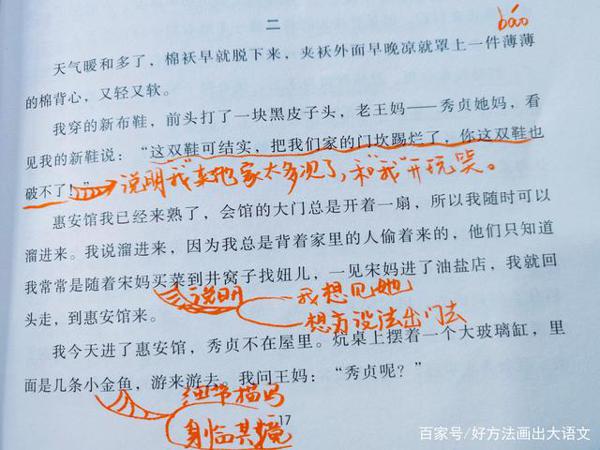 二
báo
天气暖和多了，棉袄早就脱下来，夹袄外面早晚凉就罩上一件薄薄
的棉背心，又轻又软。
我穿的新布鞋，前头打了一块黑皮子头，老王妈——秀贞她妈，看
见我的新鞋说：“这双鞋可结实，把我们家的门坎踢烂了，你这双鞋也
破不了！”
说明“我”去她家太多次了，和“我”开玩笑。
惠安馆我已经来熟了，会馆的大门总是开着一扇，所以我随时可以
溜进来。我说溜进来，因为我总是背着家里的人偷着来的，他们只知道
我常常是随着宋妈买菜到井窝子找妞儿，一见宋妈进了油盐店，我就回
头走，到惠安馆来。
说明
我想见她
想方设法出门去
我今天进了惠安馆，秀贞不在屋里。炕桌上摆着一个大玻璃缸，里
面是几条小金鱼，游来游去。我问王妈：“秀贞呢？”
细节描写
身临其境
17
百家号/好方法画出大语文